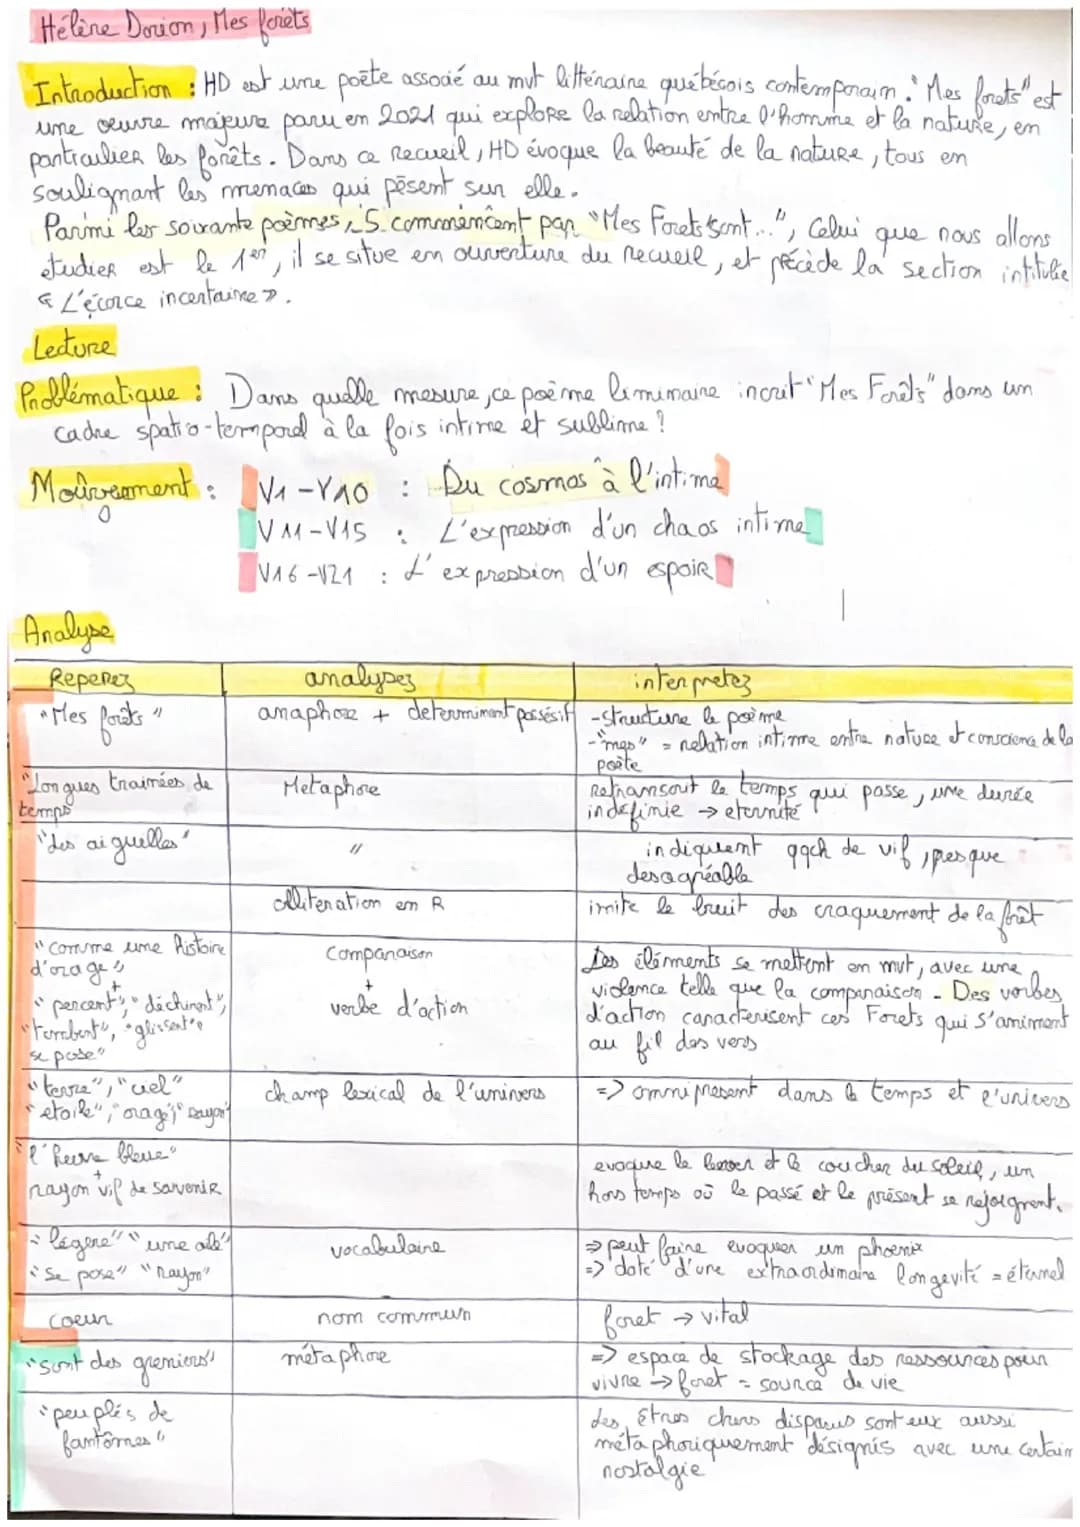 Hélène Dorion, Mes forêts
Introduction : HD est une poête associé au mvt littéraire québécois contemporain. "Mes forets" est
une oeuvre majeure paru en 2021 qui explore la relation entre l'homme et la nature, en
particulier les forêts. Dans ce recueil, HD évoque la beauté de la nature, tous en
soulignant les menaces qui pèsent sur elle.
Parmi les soixante poèmes, 5 commencent par "Mes Forets sont...", Celui que nous allons
etudier est le 1er, il se situe en ouverture du recueil, et précède la section intitulée
« L'écorce incertaine ».
Lecture
Problématique : Dans quelle mesure, ce poème liminaire incrit "Mes Forêts" dans un
cadre spatio-temporel à la fois intime et sublime ?
Mouvement : V1-V10 : Du cosmos à l'intime
V11-V15 : L'expression d'un chaos intime
V16-V21 : L'expression d'un espoir
Analyse
Reperez analysez interpretez
"Mes forêts" anaphore + determinent possésif -structure le poème
-"mes" = relation intime entre nature et conscience de la
poète
"Longues trainées de Metaphore Retranscrit le temps qui passe, une durée
temps" indéfinie → eternité
"des aiguilles" " indiquent qqch de vif, presque
desagréable
alliteration en R imite le bruit des craquement de la forêt
"comme une histoire comparaison Les éléments se mettent en mvt, avec une
d'orage" + violence telle que la comparaison. Des verbes
+ verbe d'action d'action caracterisent ces Forets qui s'animent
"percent", "déchirent", au fil des vers
"tombent", "glissent"
se pose"
"terre", "ciel" champ lexical de l'univers => omnipresent dans le temps et l'univers
"étoile", "orage", "rayon"
"l'heure bleue" evoque le lever et le coucher du soleil, un
+ hors temps où le passé et le présent se rejoignent.
rayon vif de souvenir
"légère" "une aile" vocabulaire => peut faire evoquer un phoenix
"se pose" "rayon" => doté d'une extraordinaire longevité = éternel
coeur nom commun foret → vital
"sont des greniers" métaphore => espace de stockage des ressources pour
vivre → foret = source de vie
"peuplés de Les Êtres chers disparus sont eux aussi
fantômes" métaphoriquement désignés avec une certain
nostalgie